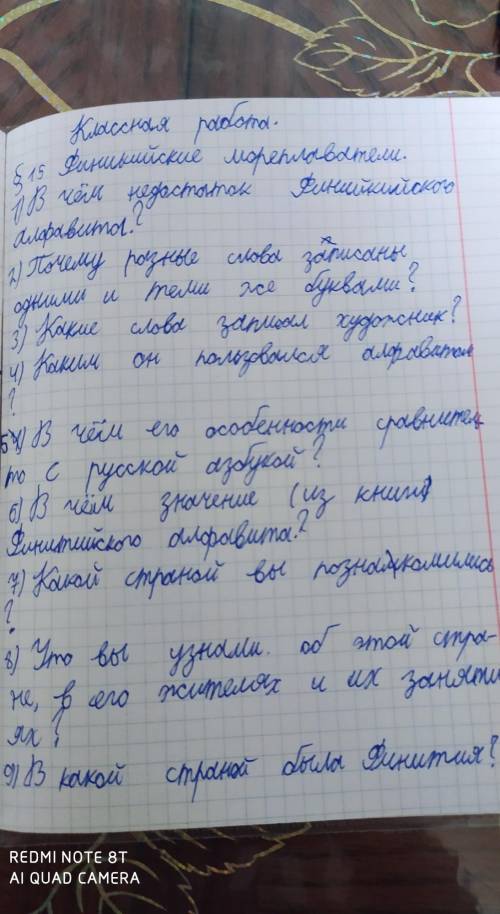 Классная работа.
§ 15 Финикийские мореплаватели.
1) В чём недостаток Финийкийского
алфавита?
2) Почему разные слова записаны
одними и теми же буквами?
3) Какие слова записал художник?
4) Каким он пользовался алфавитом
?
5) В чём его особенности сравнител
то с русской азбукой?
6) В чём значение (из книги)
Финитийского алфавита?
7) Какой страной вы познакомились
?
8) Что вы узнами. об этой стра-
не, в его жителях и их заняти
ях?
9) В какой страной была Финития?
REDMI NOTE 8T
AI QUAD CAMERA